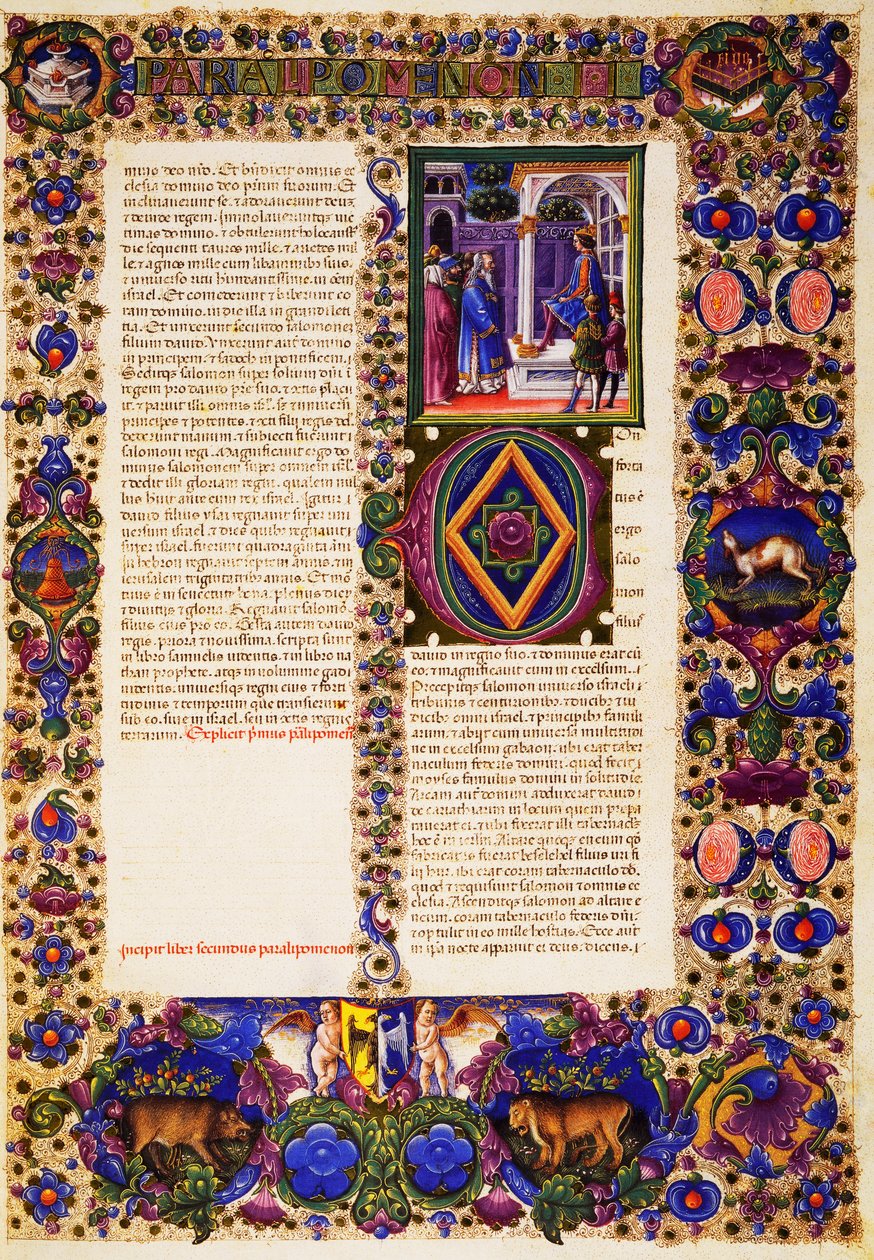 PARALIPOMENON · I
mino deo nr̄o. Et bn̄dixit omnis ec
clesia domino deo prim̄ suorum. Et
inclinaverunt se. & adoraverunt deuz
& deinde regem. Immolaveruntqz vic
timas domino. & obtulerunt holocaust̄
die sequenti tauros mille. & arietes mil
le. & agnos mille cum libaminibꝫ suis.
& universo ritu habundantissime. in oēm
israel. Et comederunt & biberunt co
ram domino. in die illa in grandi leti
tia. Et unxerunt secundo salomonez
filium david. Vnxerunt aut̄ domino
in principem. & sadoch in pontificem.
Seditqz salomon super solium dn̄i ī
regem pro david pr̄e suo. & cunctis placu
it. & paruit illi omnis isr̄l. sed & universi
principes & potentes. & cūcti filij regis dd̄.
dederunt manum. & subiecti fuerunt
salomoni regi. Magnificavit ergo do
minus salomonem super omnem isr̄l.
& dedit illi gloriam regni. qualem nul
lus habuit ante eum rex israel. Igitur
david filius ysai regnavit super uni
versum israel. & dies quibꝫ regnavit
super israel. fuerunt quadraginta ān̄i
in hebron regnavit septem annis. & in
ierusalem triginta tribus annis. Et mor
tuus ē in senectute bona. plenus dierum
& divitijs & gloria. Regnavit salomō
filius eius pro eo. Gesta autem david
regis. priora & novissima. scripta sunt
in libro samuelis videntis. & in libro na
than prophete. atqz in volumine gad
videntis. universiqz regni eius & forti
tudinis & temporum que transierunt
sub eo. sive in israel. sive in cunctis regnis
terrarum. Explicit pṁus paralipomen̄
Incipit liber secundus paralipomenon
Con
forta
tus ē
ergo
salo
mon
filius
david in regno suo. & dominus erat cū
eo. & magnificavit eum in excelsum.
Precepitqz salomon universo israeli
tribunis & centurionibꝫ. & ducibꝫ & iu
dicibꝫ omni israel. & principibꝫ famili
arum. & abijt cum universa multitudi
ne in excelsum gabaon. ubi erat taber
naculum federis domini. quod fecit
moyses famulus domini in solitudie.
Arcam aut̄ domini adduxerat david
de cariathiarim in locum quem prepa
raverat ei. & ubi fixerat illi tabernacl̄m
hoc ē in ierl̄m. Altare quoqz eneum qd̄
fabricatus fuerat beselehel filius uri fi
lij hur. ibi erat coram tabernaculo dn̄i.
quod & requisivit salomon & omnis ec
clesia. Ascenditqz salomon ad altare e
neum. coram tabernaculo federis dn̄i.
& optulit in eo mille hostias. Ecce aut̄
in ip̄a nocte apparuit ei deus. dicens.